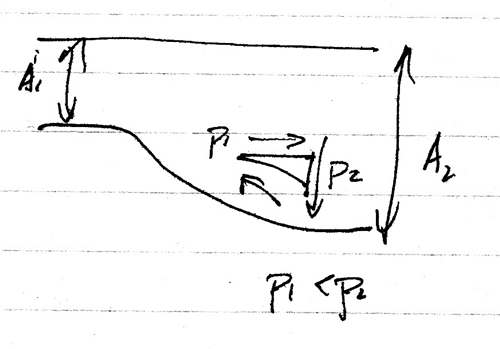 A₁
P₁
P₂
A₂
P₁ < P₂